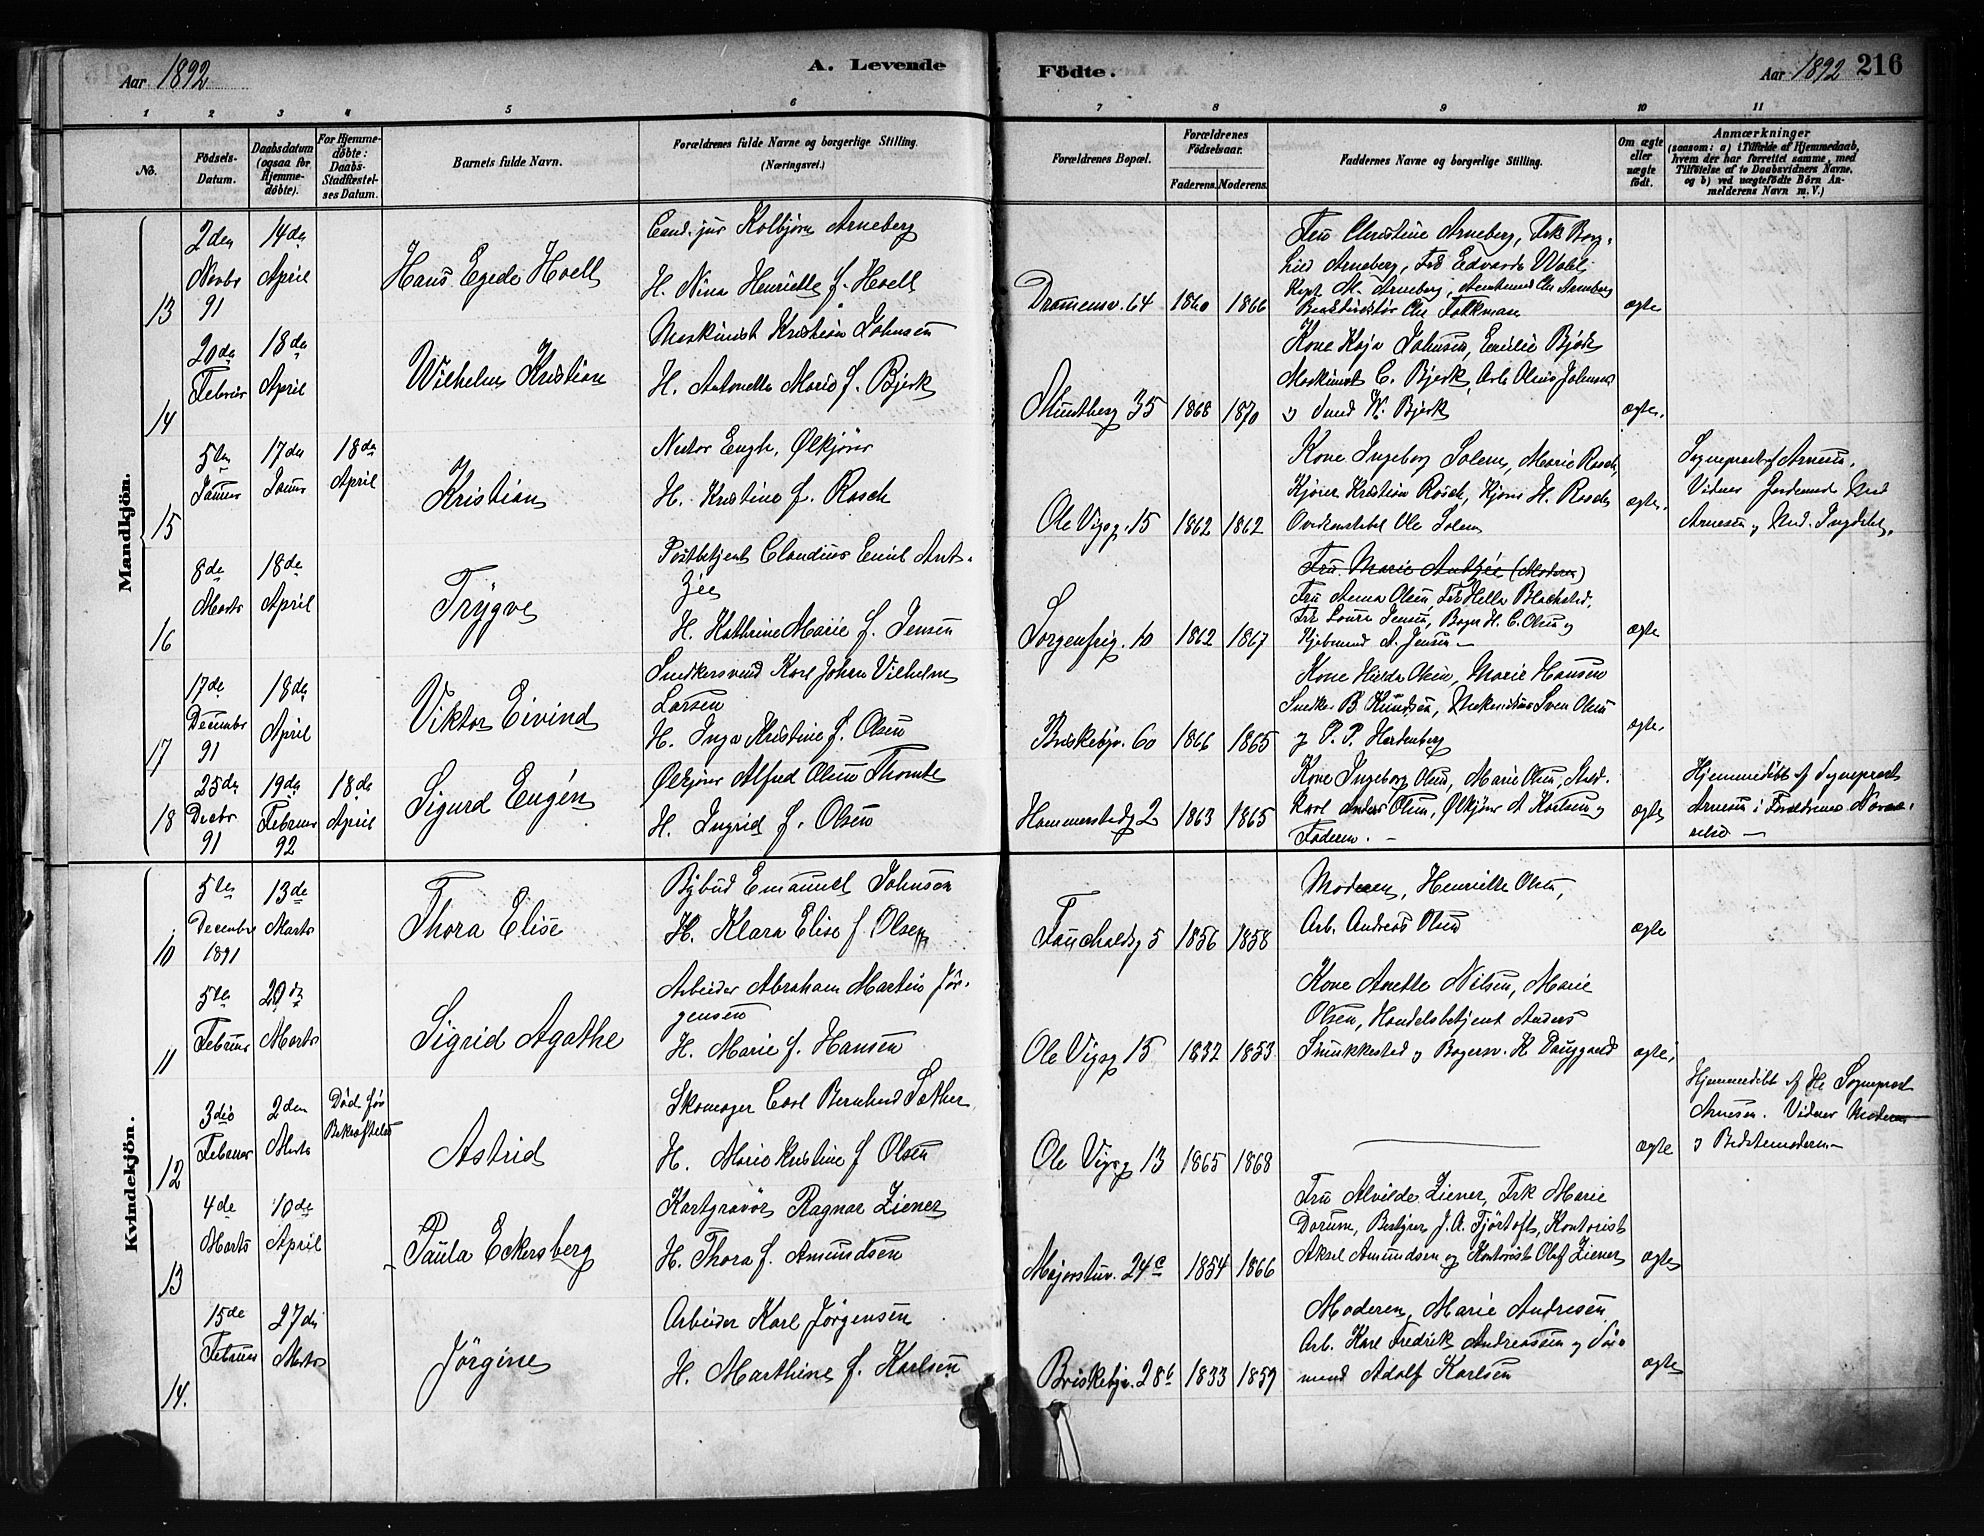 Aar 1892
A. Levende
Födte.
Aar 1892 216
1 2 3 4 5 6 7 8 9 10 11
No.
Födsels-Datum.
Daabsdatum (ogsaa for Hjemme-döbte).
For Hjemme-döbte: Daabs-Stadfæstel-ses Datum.
Barnets fulde Navn.
Forældrenes fulde Navne og borgerlige Stilling. (Næringsvei.)
Forældrenes Bopæl.
Forældrenes Födselsaar.
Faderens. Moderens.
Faddernes Navne og borgerlige Stilling.
Om ægte eller uægte födt.
Anmærkninger
(saasom: a) i Tilfælde af Hjemmedaab, hvem der har forrettet samme, med Tilföielse af to Daabsvidners Navne, og b) ved uægtefödte Börn An-melderens Navn m. V.)
Mandkjön.
13
2den Novbr 91
14de April
Hans Egede Hoell
Cand. jur Kolbjørn Arneberg
H. Nina Henriette f. Hoell
Dramensv. 64 1860 1866
Fru Christine Arneberg, Frk Borg-
hild Arneberg, Edvarda
Kapt. M. Arneberg, Amtmand Chr Arneberg
ægte
14
20de Februar
18de April
Wilhelm Kristian
Maskinist Kristian Johnsen
H. Antonette Marie f. Bjerk
35 1868 1870
Kone Kaja Johnsen, Emilie Bjerk
Maskinist C. Bjerk, Arb Johnsen
W. Bjerk
ægte.
15
5te Januar
17de Januar
18de April
Kristian
Nestor Engh, Ølkjører
H. Kristine f. Rosch
Ole Vigsg. 15 1862 1862
Kone Ingeborg Solem, Marie Rosch,
Kjører Kristian Rosch, Kjører H. Rosch
Ole Solem
ægte.
Sognepræst Arnesen.
Vidner
Arnesen
16
8de Marts
18de April
Trygve
Postbetjent Claudius Emil Ant-
zée
H. Kathrine Marie f. Jensen
Sorgenfrig. 10 1862 1867
Fru Marie Antzée (Moderen)
Fru Anna Olsen, Frk Hella
Frk Laura Jensen, Bager H. C. Olsen og
A. Jensen
ægte
17
17de Decembr 91
18de April
Viktor Eivind
Snedkersvend Karl Johan Vilhelm
Larsen
H. Inga Kristine f. Olsen
Briskebyv. 60 1866 1865
Kone Hilda Olsen, Marie Hansen
Snedker B. Knudsen, Sven Olsen
og P. P. Hardenberg
ægte.
18
25de Decbr 91
19de Februar 92
18de April
Sigurd Eugén
Ølkjører Alfred Olsen
H. Ingrid f. Olsen
Hammerstadg 2 1863 1865
Kone Ingeborg Olsen, Marie Olsen,
Karl Olsen, Ølkjører A Karlsen og
Faderen. —
ægte
Hjemmedöbt af Sognepræst
Arnesen i Forældrenes Nærvæ-
relse —
Kvindekjön.
10
5te Decembr 1891
13de Marts
Thora Elise
Bybud Emanuel Johnsen
H. Klara Elise f Olsen
Fauchaldsg 5 1856 1858
Moderen, Henriette Olsen,
Arb. Andreas Olsen
ægte
11
5te Februar
20de Marts
Sigrid Agathe
Arbeider Abraham Martin Jør-
gensen
H. Marie f. Hansen
Ole Vigsg 15 1832 1853
Kone Anette Nilsen, Marie
Olsen, Handelsbetjent Anders
og Bagersv. K Dauggaard
ægte
12
3die Februar
2den Marts
Død før Bekræftelse
Astrid
Skomager Carl Bernhard Sether
H. Marie Kristine f Olsen
Ole Vigsg 13 1865 1868
ægte
Hjemmedöbt af Hr Sognepræst
Arnesen. Vidner Moderen
og Bedstemoderen —
13
4de Marts
10de April
Paula Eckersberg
Kartgravör Ragnar Ziener
H. Thora f. Amundsen
Majorstuv. 24c 1854 1866
Fru Alvilde Ziener, Frk Marie
Dorum, Bestyrer J. A. Fjørtoft, Kontorist
Aksel Amundsen og Kontorist Olaf Ziener
ægte
14.
15de Februar
27de Marts
Jørgine
Arbeider Karl Jørgensen
H. Marthine f. Karlsen
Briskebyv. 28b 1833 1859
Moderen, Marie Andresen
Arb. Karl Fredrik Andreassen og Sø-
mand Adolf Karlsen
ægte